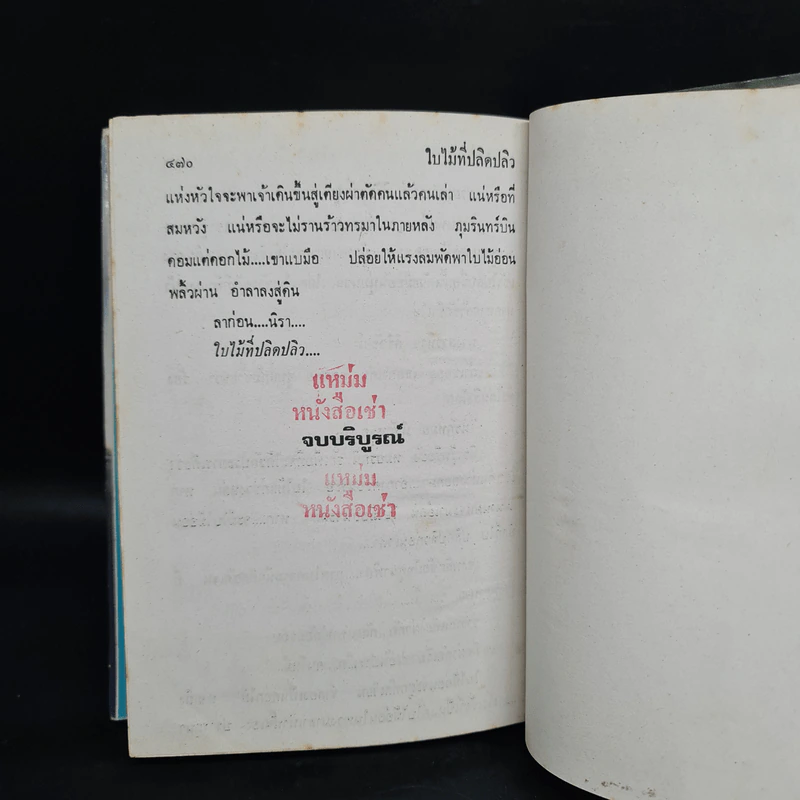 ๔๗๐
ใบไม้ที่ปลิดปลิว
แห่งหัวใจจะพาเจ้าเดินขึ้นสู่เตียงผ่าตัดคนแล้วคนเล่า แน่หรือที่
สมหวัง แน่หรือจะไม่รานร้าวทรมาในภายหลัง ภุมรินทร์บิน
ดอมแต่ดอกไม้....เขาแบมือ ปล่อยให้แรงลมพัดพาใบไม้อ่อน
พลิ้วผ่าน อำลาลงสู่ดิน
ลาก่อน....นิรา....
ใบไม้ที่ปลิดปลิว....
แหม่ม
หนังสือเช่า
จบบริบูรณ์
แหม่ม
หนังสือเช่า